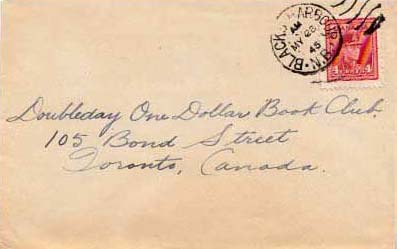 BLACKS HARBOUR
AM
MY 28
45
N.B.
4 4
Doubleday One Dollar Book Club.
105 Bond Street
Toronto, Canada.